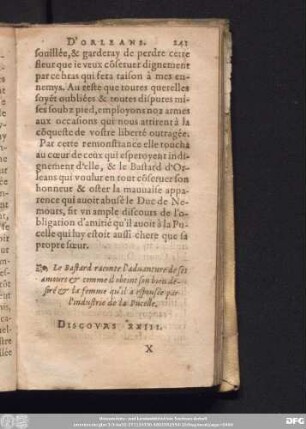 D'ORLEANS. 241
souillée, & garderay de perdre cette
fleur que ie veux cõseruer dignement
par ce bras qui fera raison à mes en-
nemys. Au reste que toutes querelles
soyẽt oubliées & toutes disputes mi-
ses soubz pied, employons noz armes
aux occasions qui nous attirent à la
cõqueste de vostre liberté outragée.
Par cette remonstrance elle toucha
au cœur de ceux qui esperoyent indi-
gnement d'elle, & le Bastard d'Or-
leans qui voulut en tout cõseruer son
honneur & oster la mauuaise appa-
rence qui auoit abusé le Duc de Ne-
mours, fit vn ample discours de l'o-
bligation d'amitié qu'il auoit à la Pu-
celle qui luy estoit aussi chere que sa
propre sœur.
Le Bastard raconte l'aduanture de ses
amours & comme il obtint son bien de-
siré & la femme qu'il a espousée par
l'industrie de la Pucelle.
DISCOVRS XXIII.
X